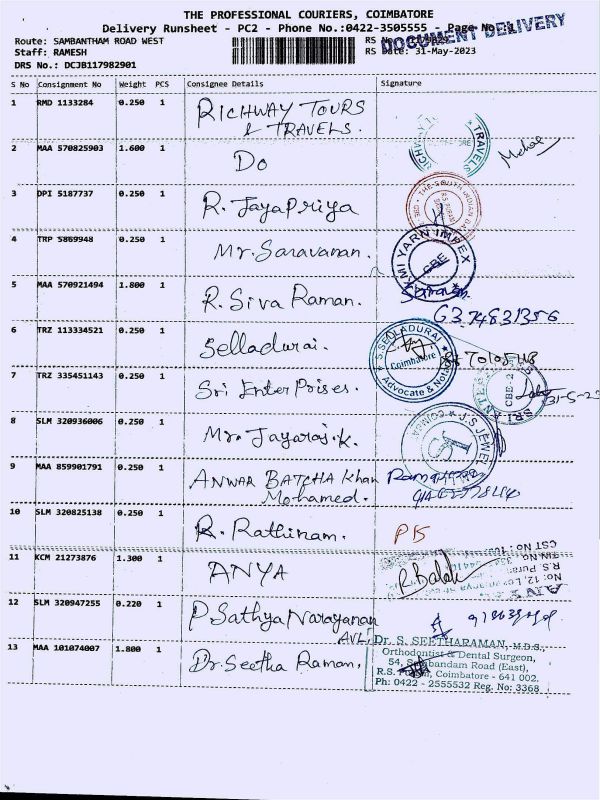 THE PROFESSIONAL COURIERS, COIMBATORE
Delivery Runsheet - PC2 - Phone No.:0422-3505555 - Page No
DOCUMENT DELIVERY
Route: SAMBANTHAM ROAD WEST
RS No
Staff: RAMESH
RS Date: 31-May-2023
DRS No.: DCJB117982901
S No Consignment No Weight PCS Consignee Details Signature
1 RMD 1133284 0.250 1 RICHWAY TOURS
& TRAVELS.
TRAVELS
2 MAA 570825903 1.600 1 Do
3 DPI 5187737 0.250 1 R. JayaPriya
THE SOUTH INDIAN
4 TRP 5869948 0.250 1 Mr. Saravanan.
YARN IMPEX
CBE
5 MAA 570921494 1.800 1 R. Siva Raman.
6374831356
6 TRZ 113334521 0.250 1 Selladurai.
S. SELLADURAI
Coimbatore
Advocate &
7 TRZ 335451143 0.250 1 Sri EnterPrises.
SRI
CBE-2
31-5-23
8 SLM 320936006 0.250 1 Mr. Jayaraj.K.
J.S JEWEL
9 MAA 859901791 0.250 1 ANWAR BATCHA Khan
Mohamed.
10 SLM 320825138 0.250 1 R. Rathinam.
P15
11 KCM 21273876 1.300 1 ANYA
R. Balak
CST No
R.S. Puram
No: 12,
12 SLM 320947255 0.220 1 P Sathya Narayanan
AVL.
13 MAA 101074007 1.800 1 Dr. Seetha Raman.
Dr. S. SEETHARAMAN, M.D.S.,
Orthodontist & Dental Surgeon,
54, Sambandam Road (East),
R.S. Puram, Coimbatore - 641 002.
Ph: 0422 - 2555532 Reg. No: 3368